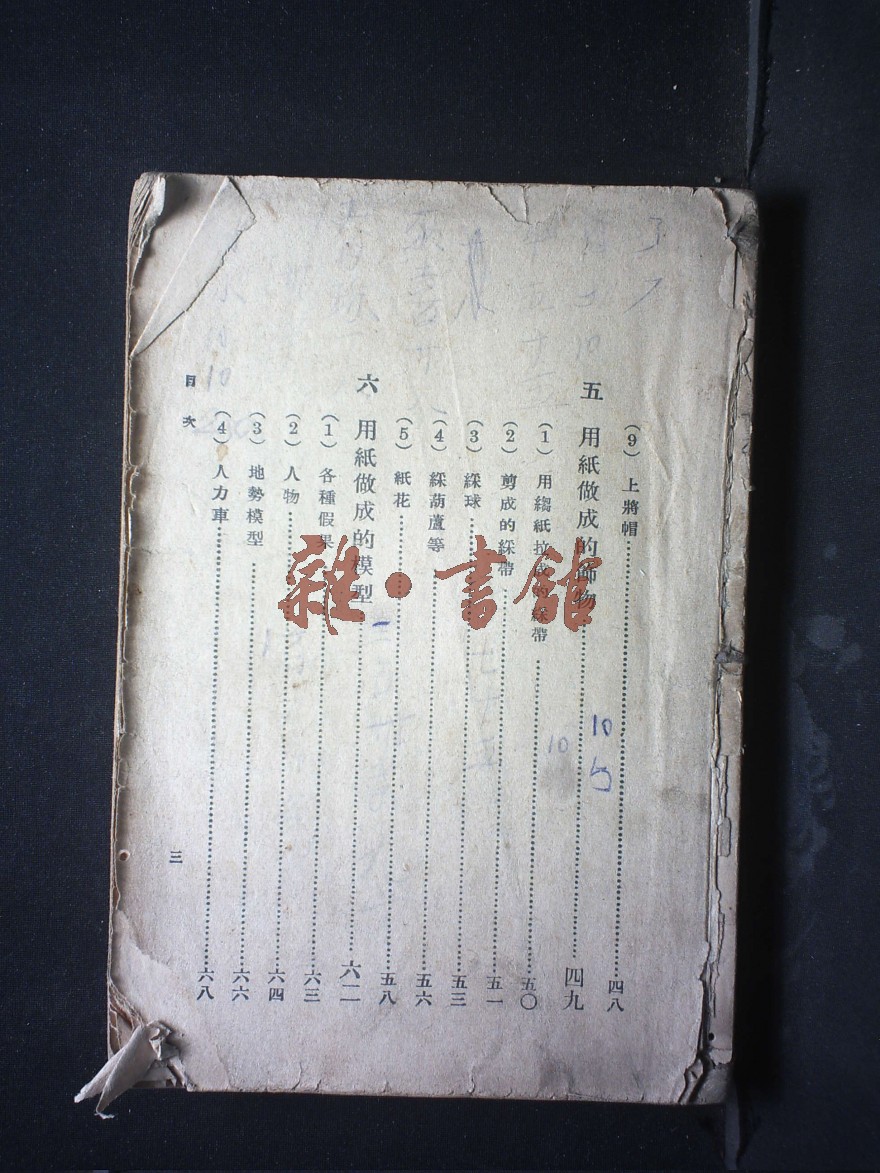 (9) 上將帽……四八
五 用紙做成的飾物……四九
(1) 用縐紙拉成的綵帶……五〇
(2) 剪成的綵帶……五一
(3) 綵球……五三
(4) 綵葫蘆等……五六
(5) 紙花……五八
六 用紙做成的模型……六二
(1) 各種假果……六三
(2) 人物……六四
(3) 地勢模型……六六
(4) 人力車……六八
目次
三
雜·書館
10
10